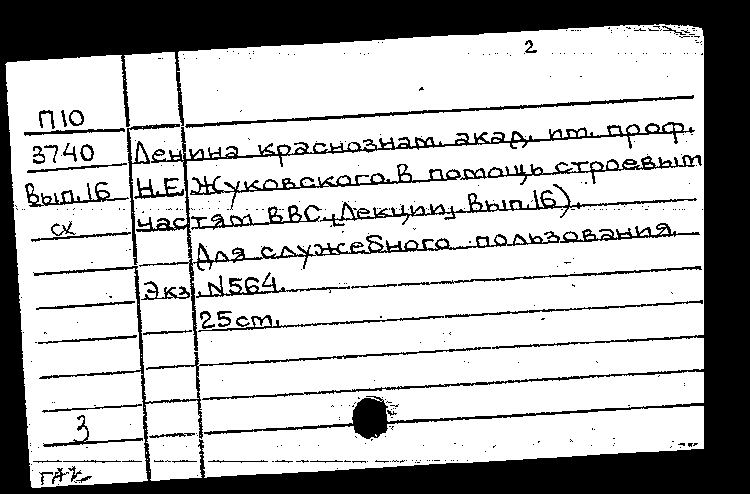 2
П10
3740 Ленина краснознам. акад. им. проф.
Вып.16 Н.Е.Жуковского. В помощь строевым
ск частям ВВС. Лекции. Вып.16).
Для служебного пользования.
Экз. N564.
25cm.
3